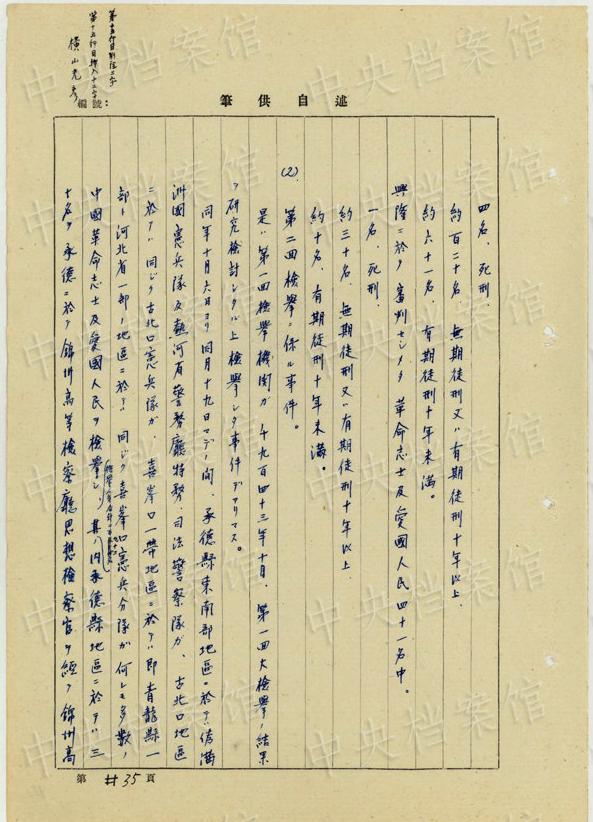 述自供筆
編號：
横山光彦
四名、死刑、
約百二十名 無期徒刑又ハ有期徒刑十年以上、
約六十一名、有期徒刑十年未満。
興隆ニ於テ審判セシメタ革命志士及愛國人民四十一名中。
一名、死刑、
約三十名、無期徒刑又ハ有期徒刑十年以上
約十名、有期徒刑十年未満。
(2) 第二回検挙ニ係ル事件。
是ハ第一回検挙機関ガ、千九百四十三年十月、第一回大検挙ノ結果
ヲ研究検討シタル上検挙シタ事件デアリマス。
同年十月六日ヨリ同月十九日マデノ間、承德縣東南部地區ニ於テハ偽満
洲國憲兵隊及熱河省警務廳特務、司法警察隊ガ、古北口地區
ニ於テハ同ジク古北口憲兵隊ガ、喜峯口一帶地區ニ於テハ即青龍縣一
部ト河北省一部ノ地區ニ於テハ同ジク喜峯口憲兵分隊ガ何レモ多數ノ
中國革命志士及愛國人民ヲ検挙シ、其ノ内承德縣地區ニ於テハ三
十名ヲ承德ニ於テ錦州高等檢察廳思想檢察官ヲ經テ錦州高
第 #35 頁
中央档案馆